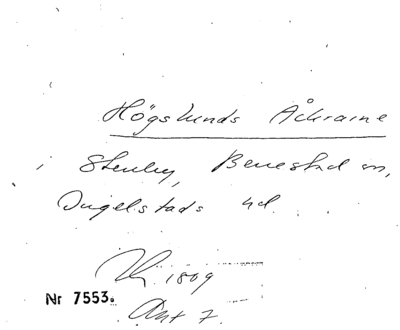 Högslunds Åkrarne
i Stenby, Benestad sn,
Ingelstads hd.
1809
Nr 7553.
Akt 7.